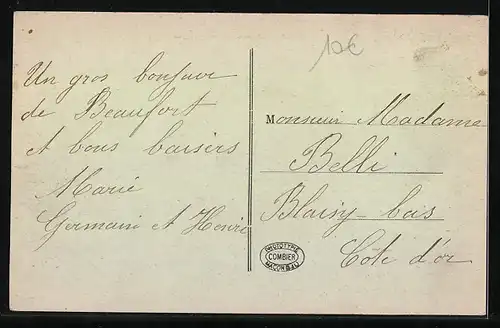 10€
Un gros bonjour
de Beaufort
et bons baisers
Marie
Germain et Henri
Monsieur Madame
Belli
Blaisy-bas
Côte d'or
COMBIER
MACON